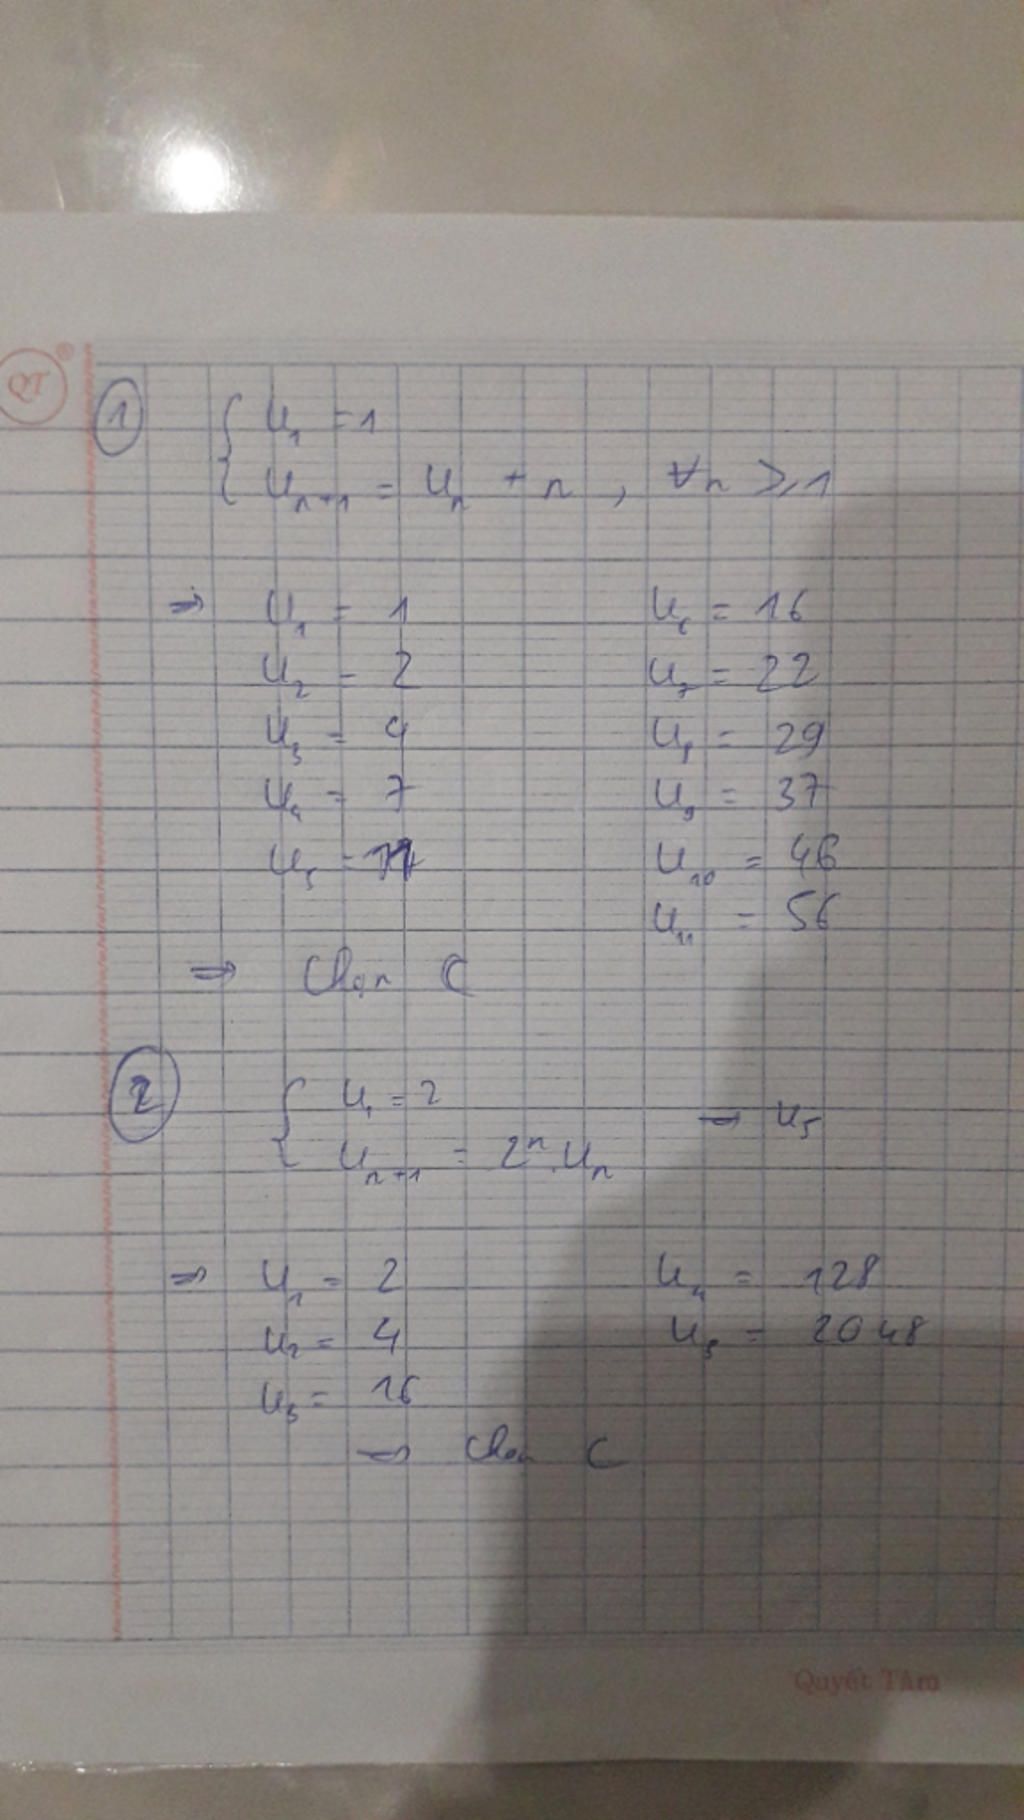 QT
①
{ U₁ = 1
Uₙ₊₁ = Uₙ + n , ∀n ⩾ 1
⇒ U₁ = 1
U₂ = 2
U₃ = 4
U₄ = 7
U₅ = 11
U₆ = 16
U₇ = 22
U₈ = 29
U₉ = 37
U₁₀ = 46
U₁₁ = 56
⇒ Chọn C
②
{ U₁ = 2
Uₙ₊₁ = 2ⁿ.Uₙ
→ U₅
⇒ U₁ = 2
U₂ = 4
U₃ = 16
U₄ = 128
U₅ = 2048
⇒ Chọn C
Quyết Tâm